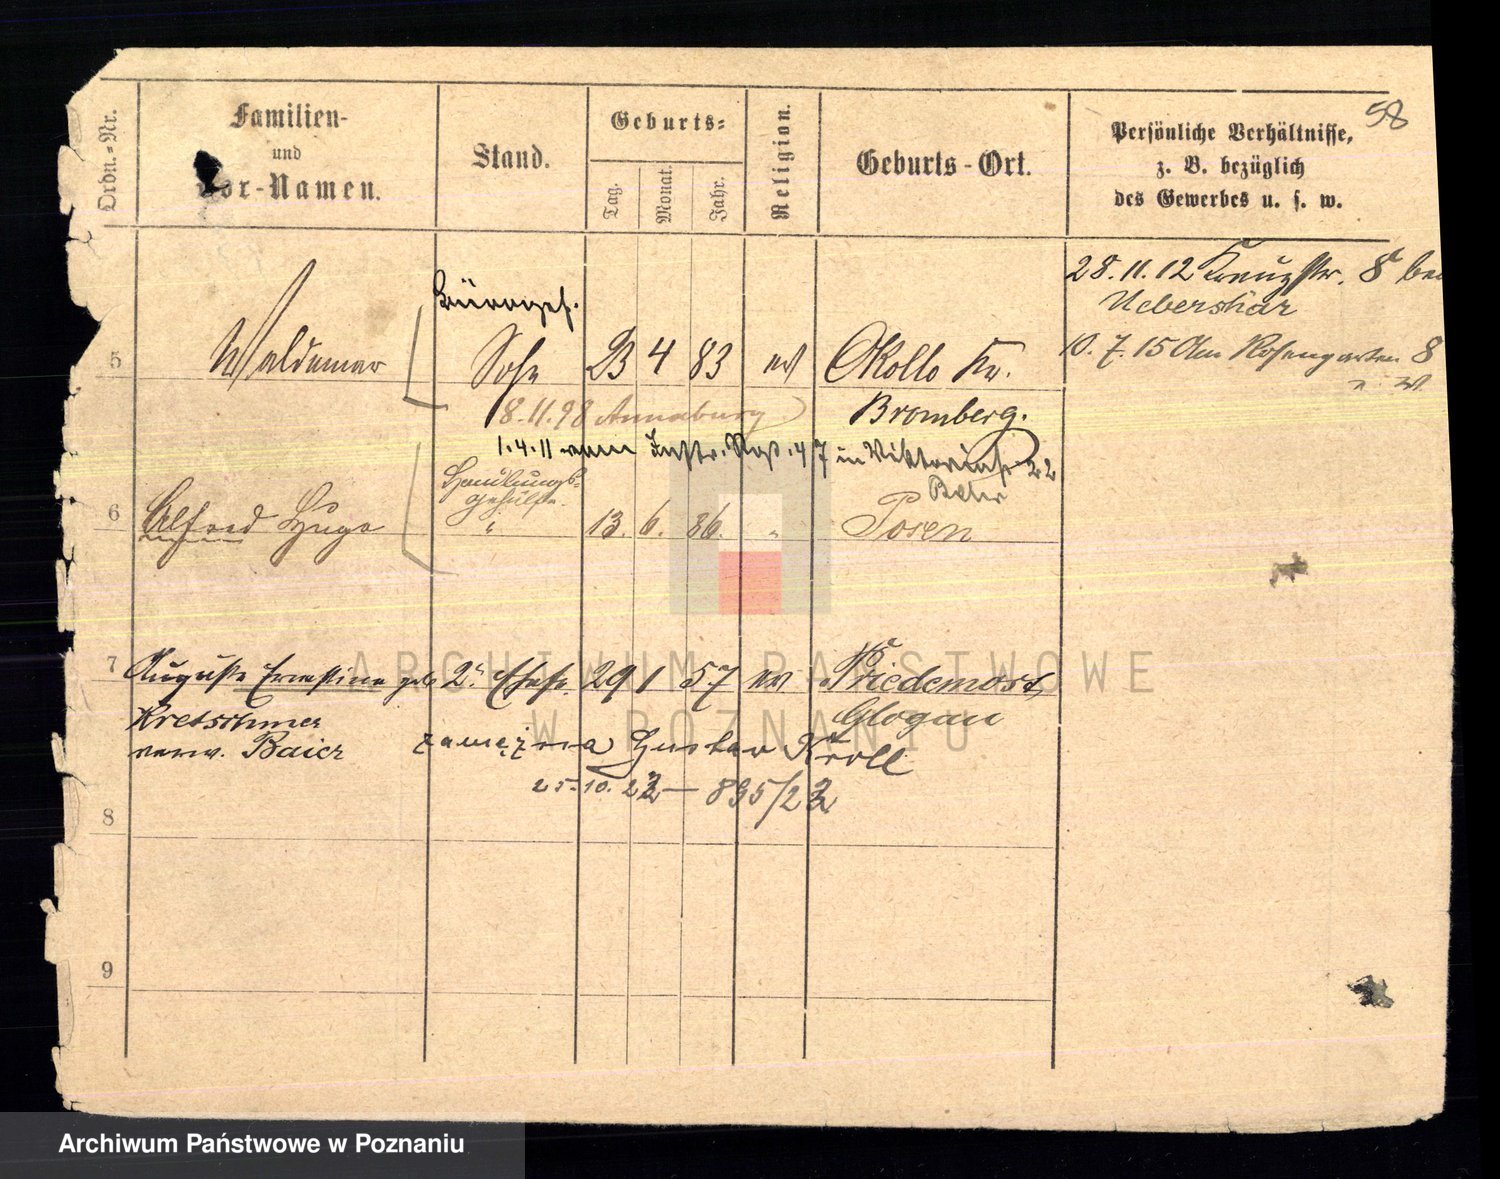 58
Ordn.-Nr.
Familien-
und
Vor-Namen.
Stand.
Geburts-
Tag.
Monat.
Jahr.
Religion.
Geburts-Ort.
Persönliche Verhältnisse,
z. B. bezüglich
des Gewerbes u. s. w.
28. 11. 12 Kreuzstr. 8 bei
Ueberschär
10. 7. 15 Am Rosengarten 8
Bürogeh.
5 Waldemar Sohn 23 4 83 ev Okollo Kr.
Bromberg.
8.11.98 Annaburg
1.4.11 vom Inftr. Rgt. 47 in Viktoriastr 22
Handlungs-
gehülfe.
6 Alfred Hugo " 13. 6. 86. " Posen
7 Auguste Ernestine geb 2t. Ehefr. 29 1 57 ev Friedemost,
Kretschmer Glogau
verw. Baier zamężna Gustav Kroll
25.10.22 — 895/22
8
9
ARCHIWUM PAŃSTWOWE
W POZNANIU
Archiwum Państwowe w Poznaniu